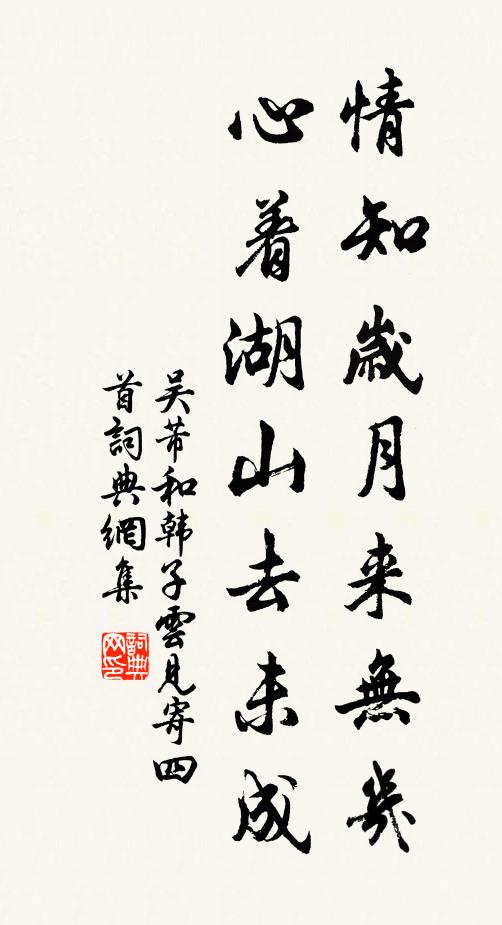 情知歲月来無幾
心着湖山去未成
吴芾和韩子雲見寄四
首詞典網集
詞典网印